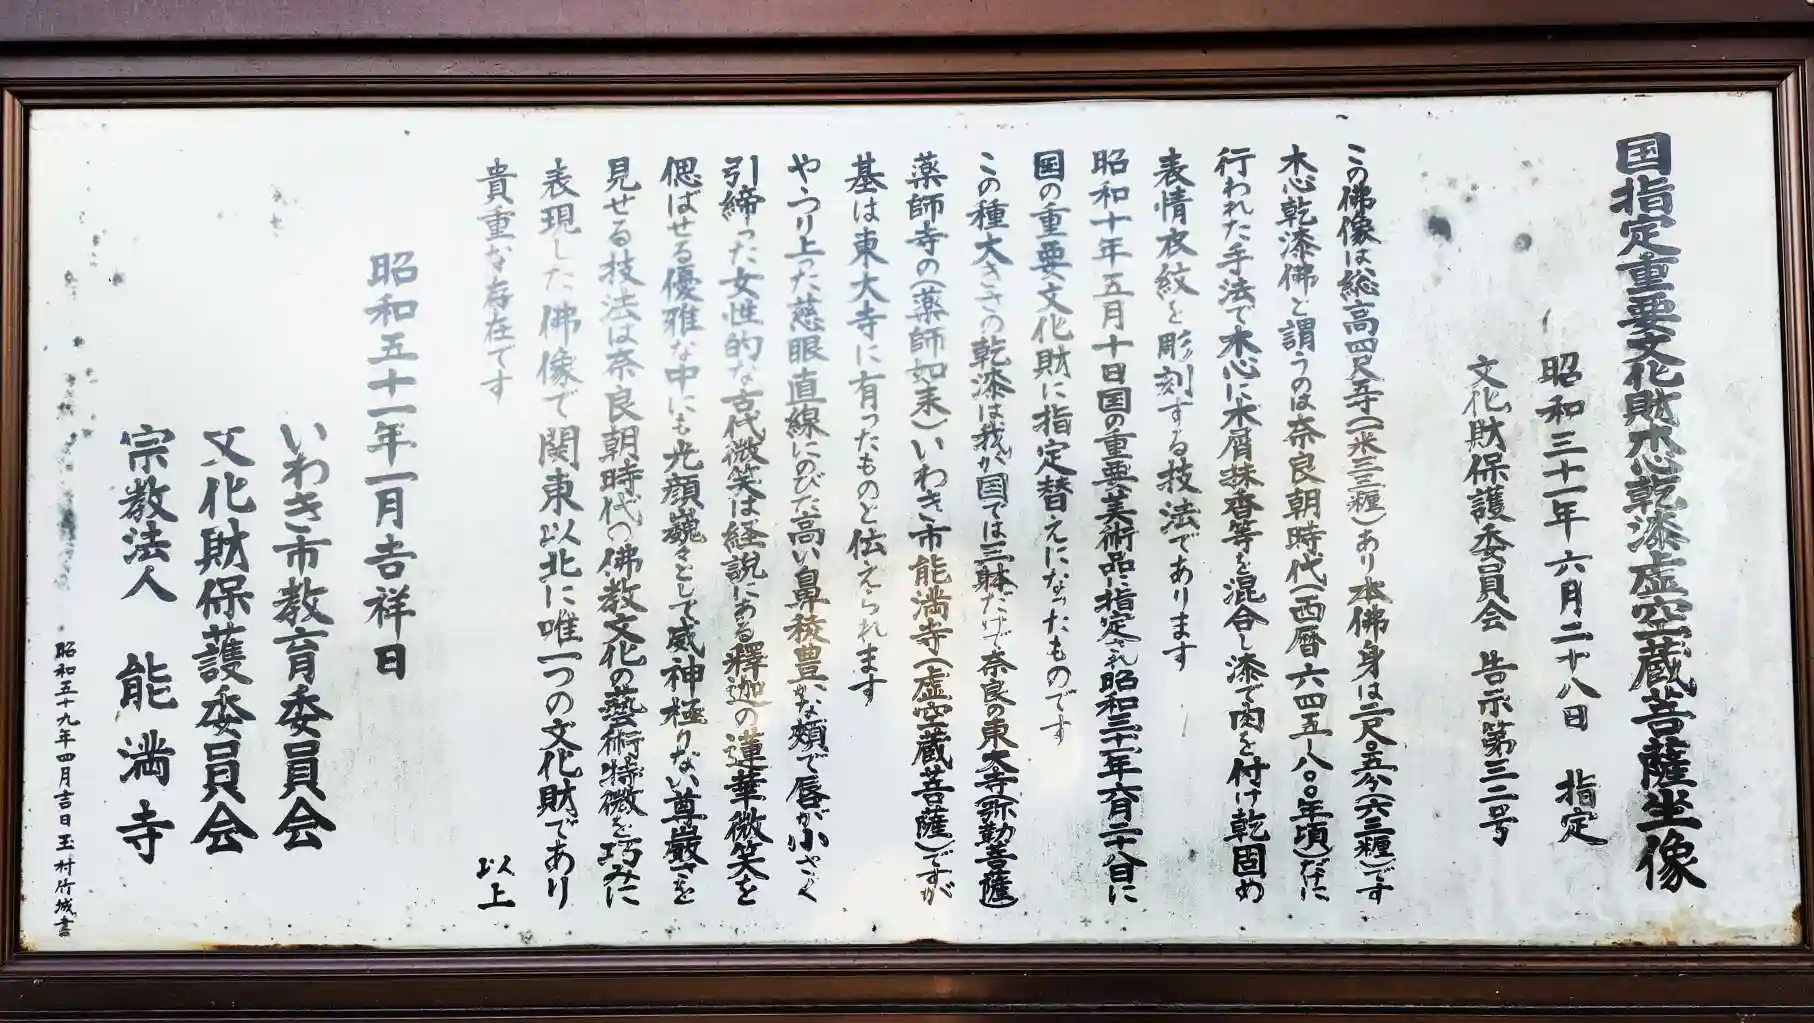 国指定重要文化財木心乾漆虚空蔵菩薩坐像
昭和三十一年六月二十八日　指定
文化財保護委員会　告示第三二号
この佛像は総高四尺五寸(一米三三糎)あり本佛身は二尺〇五分(六三糎)です
木心乾漆佛と謂うのは奈良朝時代(西暦六四五-八〇〇年頃)なに
行われた手法で木心に木屑抹香等を混合し漆で肉を付け乾固め
表情衣紋を彫刻する技法であります
昭和十年五月十日国の重要美術品に指定され昭和三十一年六月二十八日に
国の重要文化財に指定替えになったものです
この種大きさの乾漆は我が国では三躰だけで奈良の東大寺(弥勒菩薩)
薬師寺の(薬師如来)いわき市能満寺(虚空蔵菩薩)ですが
基は東大寺に有ったものと伝えられます
やつり上った慈眼直線にのびた高い鼻稜豊かな頬で唇が小さく
引締った女性的な古代微笑は経説にある釋迦の蓮華微笑を
偲ばせる優雅な中にも光顔巍々として威神極りない尊厳さを
見せる技法は奈良朝時代の佛教文化の藝術特徴を巧みに
表現した佛像で関東以北に唯一つの文化財であり
貴重な存在です
以上
昭和五十一年一月吉祥日
いわき市教育委員会
文化財保護委員会
宗教法人　能満寺
昭和五十九年四月吉日玉村竹城書